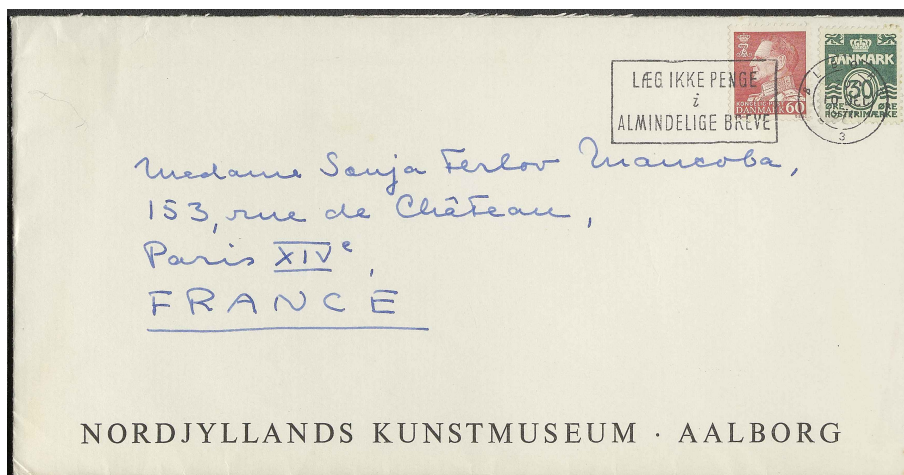 LÆG IKKE PENGE
i
ALMINDELIGE BREVE
DANMARK 60
DANMARK
30
ØRE ØRE
3
Madame Sonja Ferlov Mancoba,
153, rue de Château,
Paris XIVe,
FRANCE
NORDJYLLANDS KUNSTMUSEUM · AALBORG